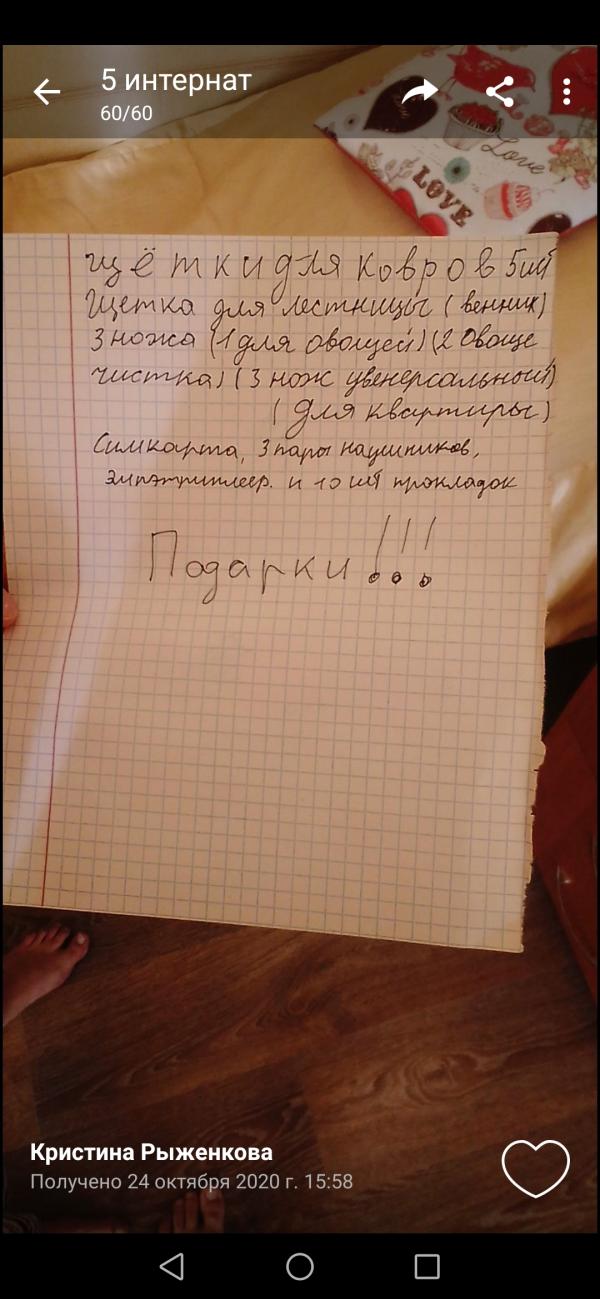 5 интернат
60/60
LOVE
Love
щётки для ковров 5шт
Щетка для лестницы (веник)
3 ножа (1 для овощей) (2 Овоще
чистка) (3 нож увенерсальный)
(для квартиры)
Симкарта, 3 пары наушников,
и 10 шт прокладок
Подарки!!!
Кристина Рыженкова
Получено 24 октября 2020 г. 15:58